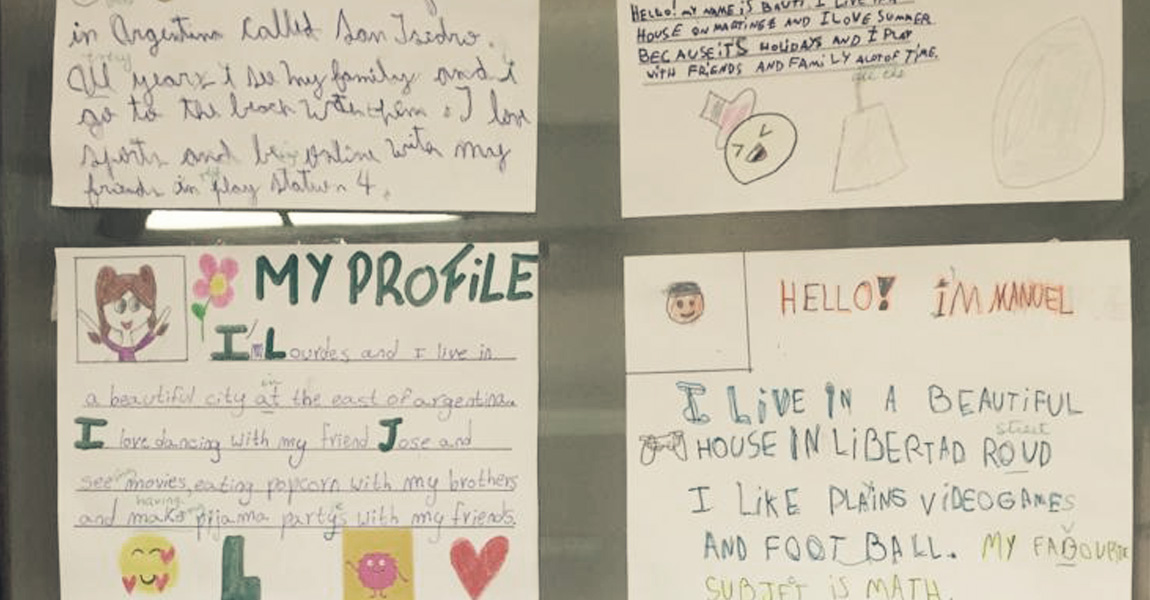 in Argentina called San Isidro.
every
All years I see my family and i
go to the beach with them. I love
sports and be online with my
friends in play station 4.
HELLO! MY NAME IS BAUTI I LIVE
HOUSE ON MARTINEZ AND I LOVE SUMMER
BECAUSE IT'S HOLIDAYS AND I PLAY
WITH FRIENDS AND FAMILY A LOT OF TIME.
all the
MY PROFILE
I'm Lourdes and I live in
in
a beautiful city at the east of argentina.
I love dancing with my friend Jose and
see movies, eating popcorn with my brothers
having
and make pijama party's with my friends.
L
HELLO! I'M MANUEL
I LIVE IN A BEAUTIFUL
street
HOUSE IN LIBERTAD ROUD
I LIKE PLAINS VIDEOGAMES
AND FOOTBALL. MY FABOURITE
SUBJET IS MATH.